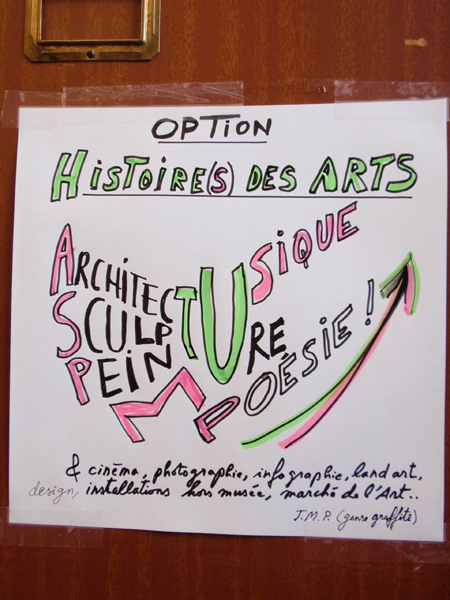 OPTION
HiSTOiRE(S) DES ARTS
ASP
ARCHITECTURE
SCULPTURE
PEINTURE
MUSiQUE
POÉSiE !
& cinéma, photographie, infographie, land art,
design, installations hors musée, marché de l'Art..
J.M.P. (genre graffité)